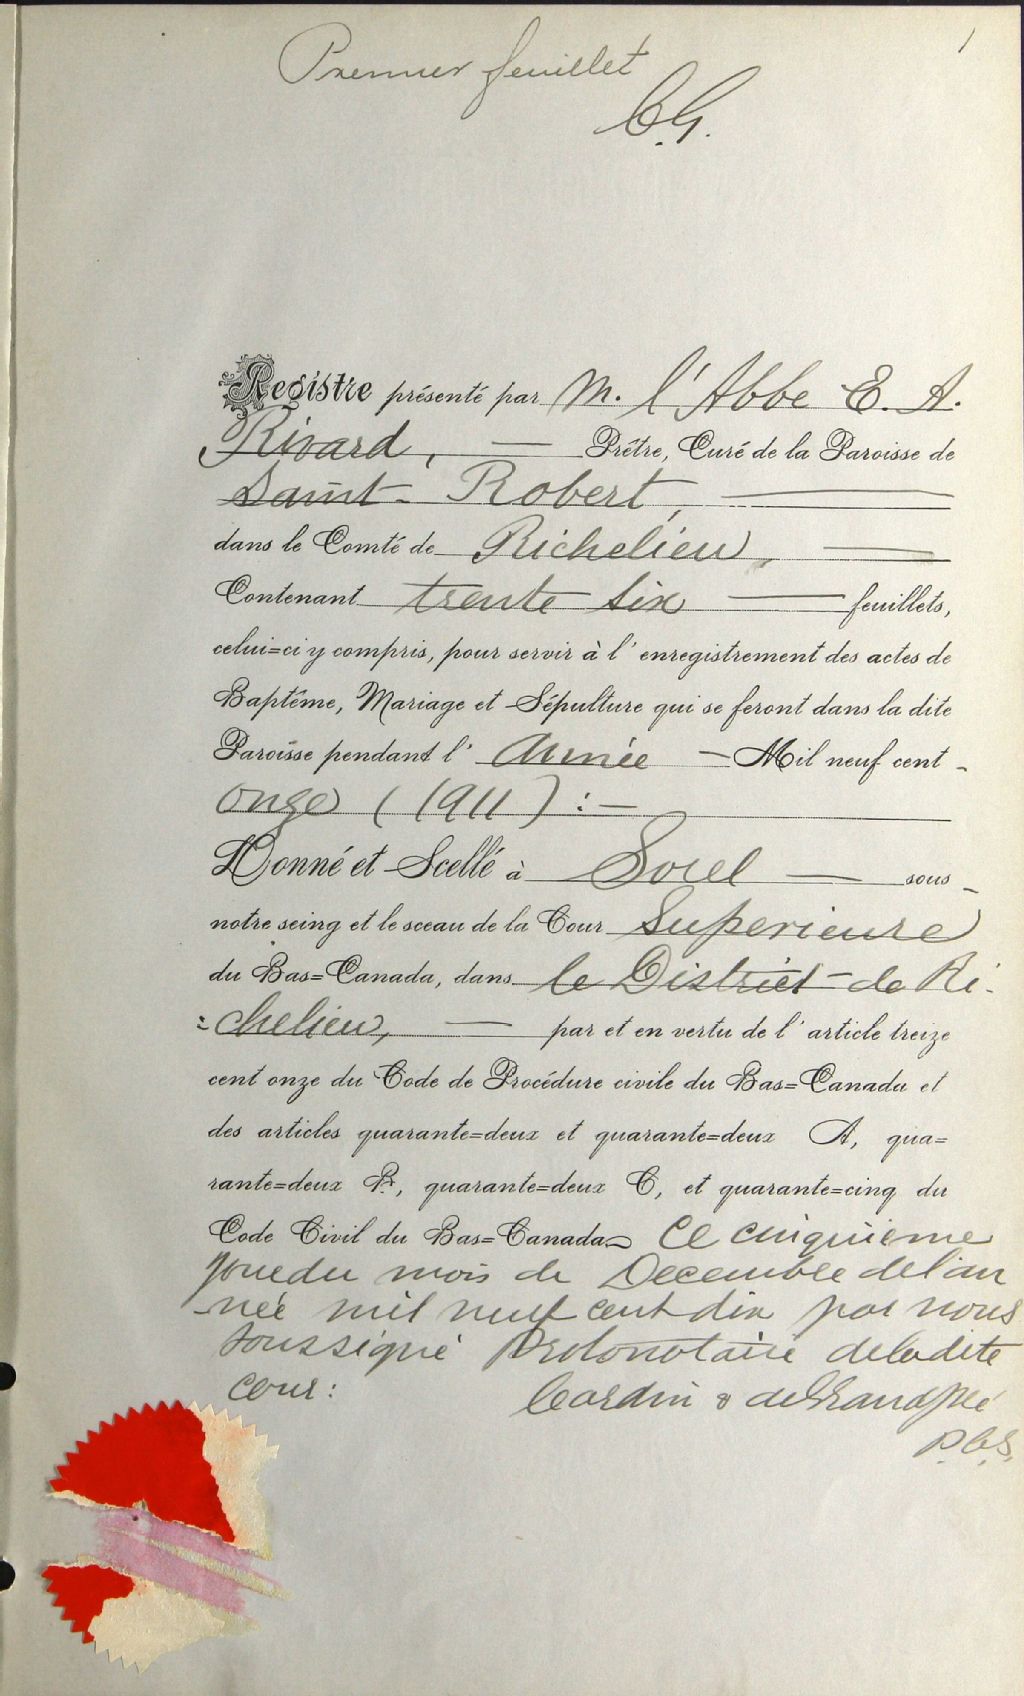 Premier feuillet
1
C.G.
Registre présenté par M. l'Abbe E. A.
Rivard, — Prêtre, Curé de la Paroisse de
Saint-Robert,
dans le Comté de Richelieu,
Contenant trente six feuillets,
celui=ci y compris, pour servir à l'enregistrement des actes de
Baptême, Mariage et Sépulture qui se feront dans la dite
Paroisse pendant l'Année — Mil neuf cent
onze (1911) :—
Donné et Scellé à Sorel — sous
notre seing et le sceau de la Cour Superieure
du Bas=Canada, dans le District de Ri-
=chelieu, — par et en vertu de l'article treize
cent onze du Code de Procédure civile du Bas=Canada et
des articles quarante=deux et quarante=deux A, qua=
rante=deux B, quarante=deux C, et quarante=cinq du
Code Civil du Bas=Canada Ce cinquieme
jour du mois de Decembre de l'an
née mil neuf cent dix par nous
soussigné Protonotaire de la dite
Cour:
Cardin & deGrandpré
P.C.S.